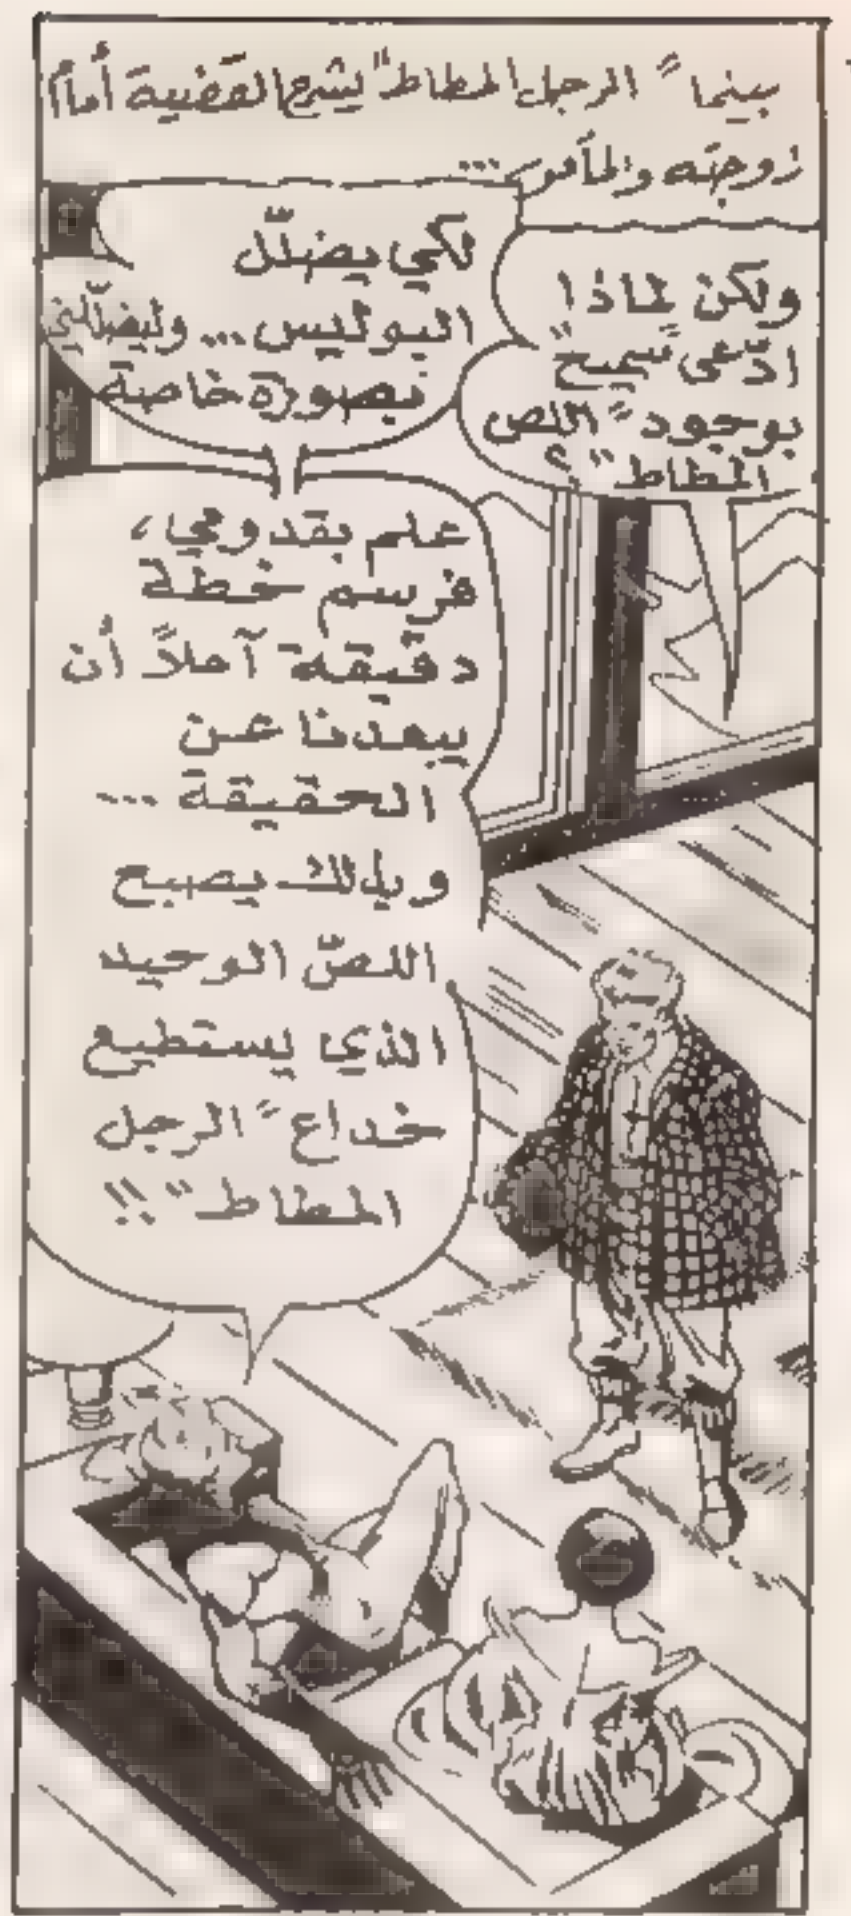 بينما "الرجل المطاط" يشرح القضية أمام
زوجته والمأمور...
ولكن لماذا
ادّعى "سميح"
بوجود "اللص
المطاط"؟
لكي يضلّل
البوليس... وليضلّلني
بصورة خاصة
علم بقدومي،
فرسم خطة
دقيقة آملاً أن
يبعدنا عن
الحقيقة ...
وبذلك يصبح
اللصّ الوحيد
الذي يستطيع
خداع "الرجل
المطاط"!!